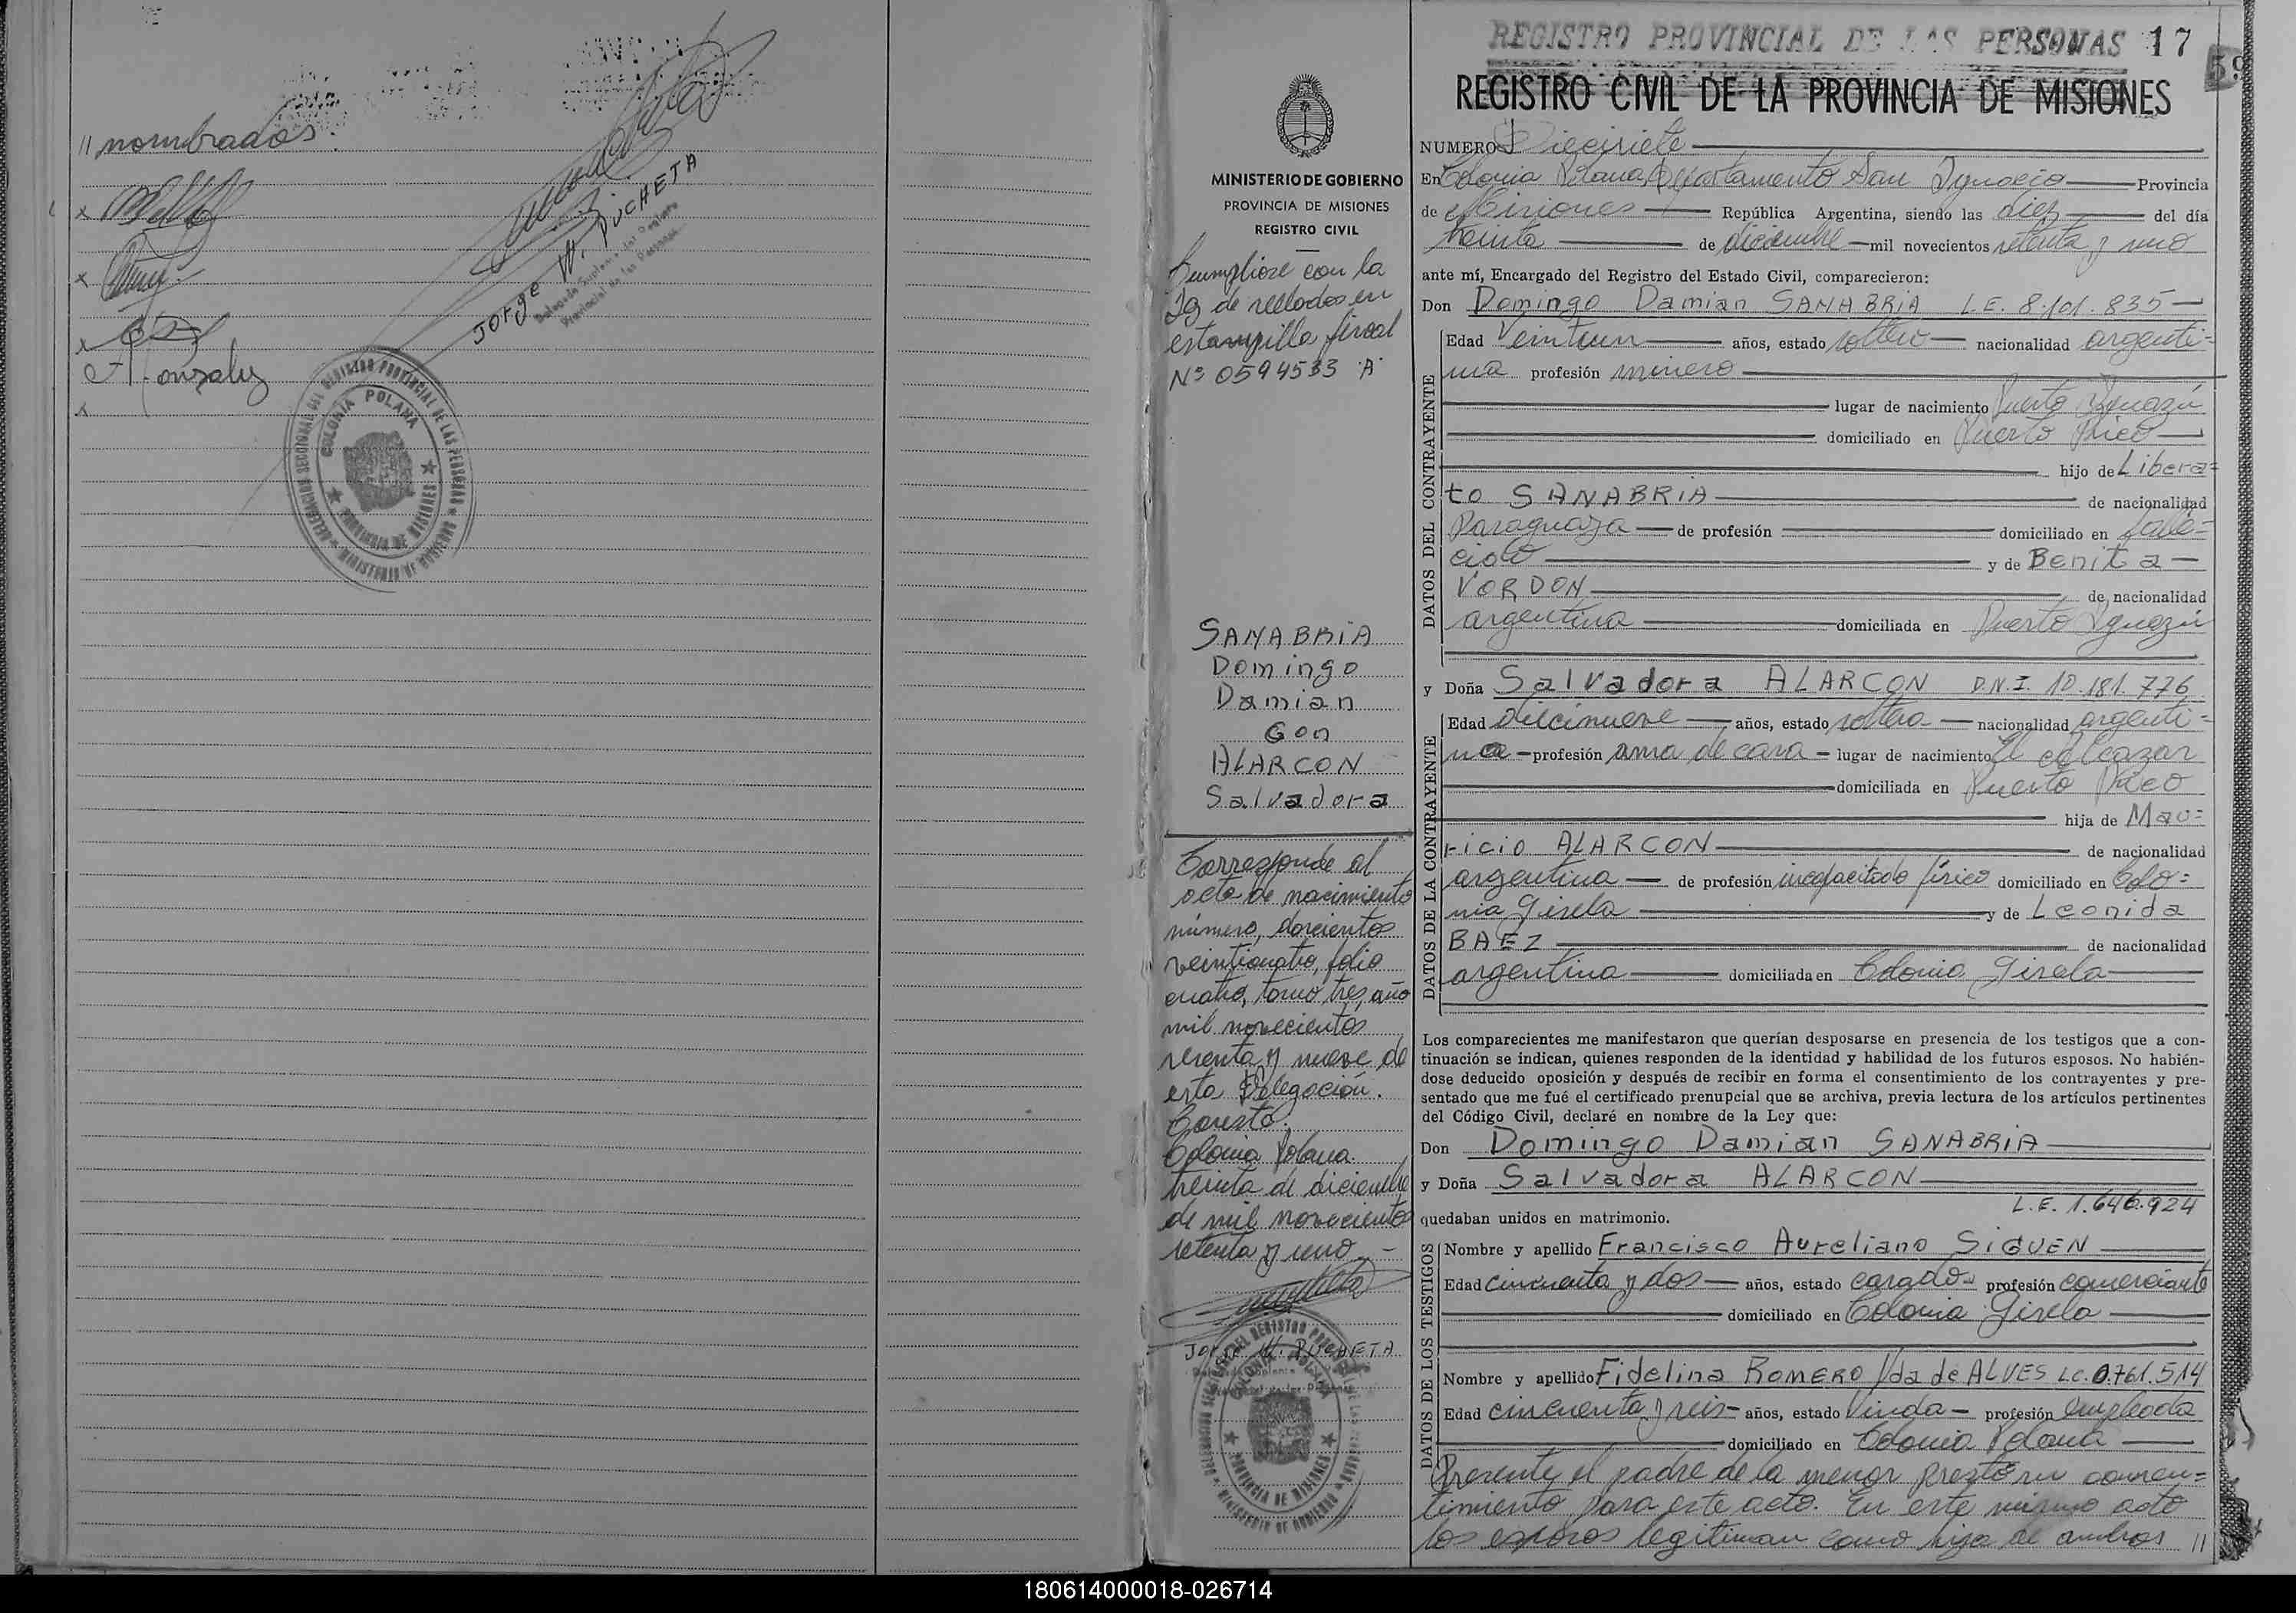 // nombrados.
x
x
x
A. Gonzalez
x
JORGE W. PUCHETA
Delegado Suplente del Registro
Provincial de las Personas
DELEGACION SECCIONAL DEL REGISTRO PROVINCIAL DE LAS PERSONAS
COLONIA POLANA
PROVINCIA DE MISIONES
MINISTERIO DE GOBIERNO
MINISTERIO DE GOBIERNO
PROVINCIA DE MISIONES
REGISTRO CIVIL
Cumpliose con la
Ley de sellados en
estampilla fiscal
Nº 0594533 "A"
SANABRIA
Domingo
Damian
Con
ALARCON
Salvadora
Corresponde al
acta de nacimiento
número, doscientos
veinticuatro, folio
cuatro, tomo tres, año
mil novecientos
sesenta y nueve de
esta Delegación.
Conste.
Colonia Polana
treinta de diciembre
de mil novecientos
setenta y uno.-
JORGE W. PUCHETA
REGISTRO PROVINCIAL DE LAS PERSONAS 17
59
REGISTRO CIVIL DE LA PROVINCIA DE MISIONES
NUMERO Diecisiete
En Colonia Polana, Departamento San Ignacio Provincia
de Misiones República Argentina, siendo las diez del día
treinta de diciembre mil novecientos setenta y uno
ante mí, Encargado del Registro del Estado Civil, comparecieron:
Don Domingo Damian SANABRIA L.E. 8.101.835
DATOS DEL CONTRAYENTE
Edad Veintiun años, estado soltero nacionalidad argenti=
na profesión minero
lugar de nacimiento Puerto Iguazú
domiciliado en Puerto Rico
hijo de Libera=
to SANABRIA de nacionalidad
Paraguaya de profesión domiciliado en falle=
cido y de Benita
VORDON de nacionalidad
argentina domiciliada en Puerto Iguazú
y Doña Salvadora ALARCON D.N.I. 10.181.776
DATOS DE LA CONTRAYENTE
Edad diecinueve años, estado soltera nacionalidad argenti=
na profesión ama de casa lugar de nacimiento El Alcazar
domiciliada en Puerto Rico
hija de Mau=
ricio ALARCON de nacionalidad
argentina de profesión incapacitado físico domiciliado en Colo=
nia Gisela y de Leonida
BAEZ de nacionalidad
argentina domiciliada en Colonia Gisela
Los comparecientes me manifestaron que querían desposarse en presencia de los testigos que a con-
tinuación se indican, quienes responden de la identidad y habilidad de los futuros esposos. No habién-
dose deducido oposición y después de recibir en forma el consentimiento de los contrayentes y pre-
sentado que me fué el certificado prenupcial que se archiva, previa lectura de los artículos pertinentes
del Código Civil, declaré en nombre de la Ley que:
Don Domingo Damian SANABRIA
y Doña Salvadora ALARCON
quedaban unidos en matrimonio. L.E. 1.646.924
DATOS DE LOS TESTIGOS
Nombre y apellido Francisco Aureliano SIGUEN
Edad cincuenta y dos años, estado casado profesión comerciante
domiciliado en Colonia Gisela
Nombre y apellido Fidelina ROMERO Vda de ALVES L.C. 0.761.514
Edad cincuenta y seis años, estado Viuda profesión empleada
domiciliado en Colonia Polana
Presente el padre de la menor prestó su consen=
timiento para este acto. En este mismo acto
los esposos legitiman como hijo de ambos //
180614000018-026714